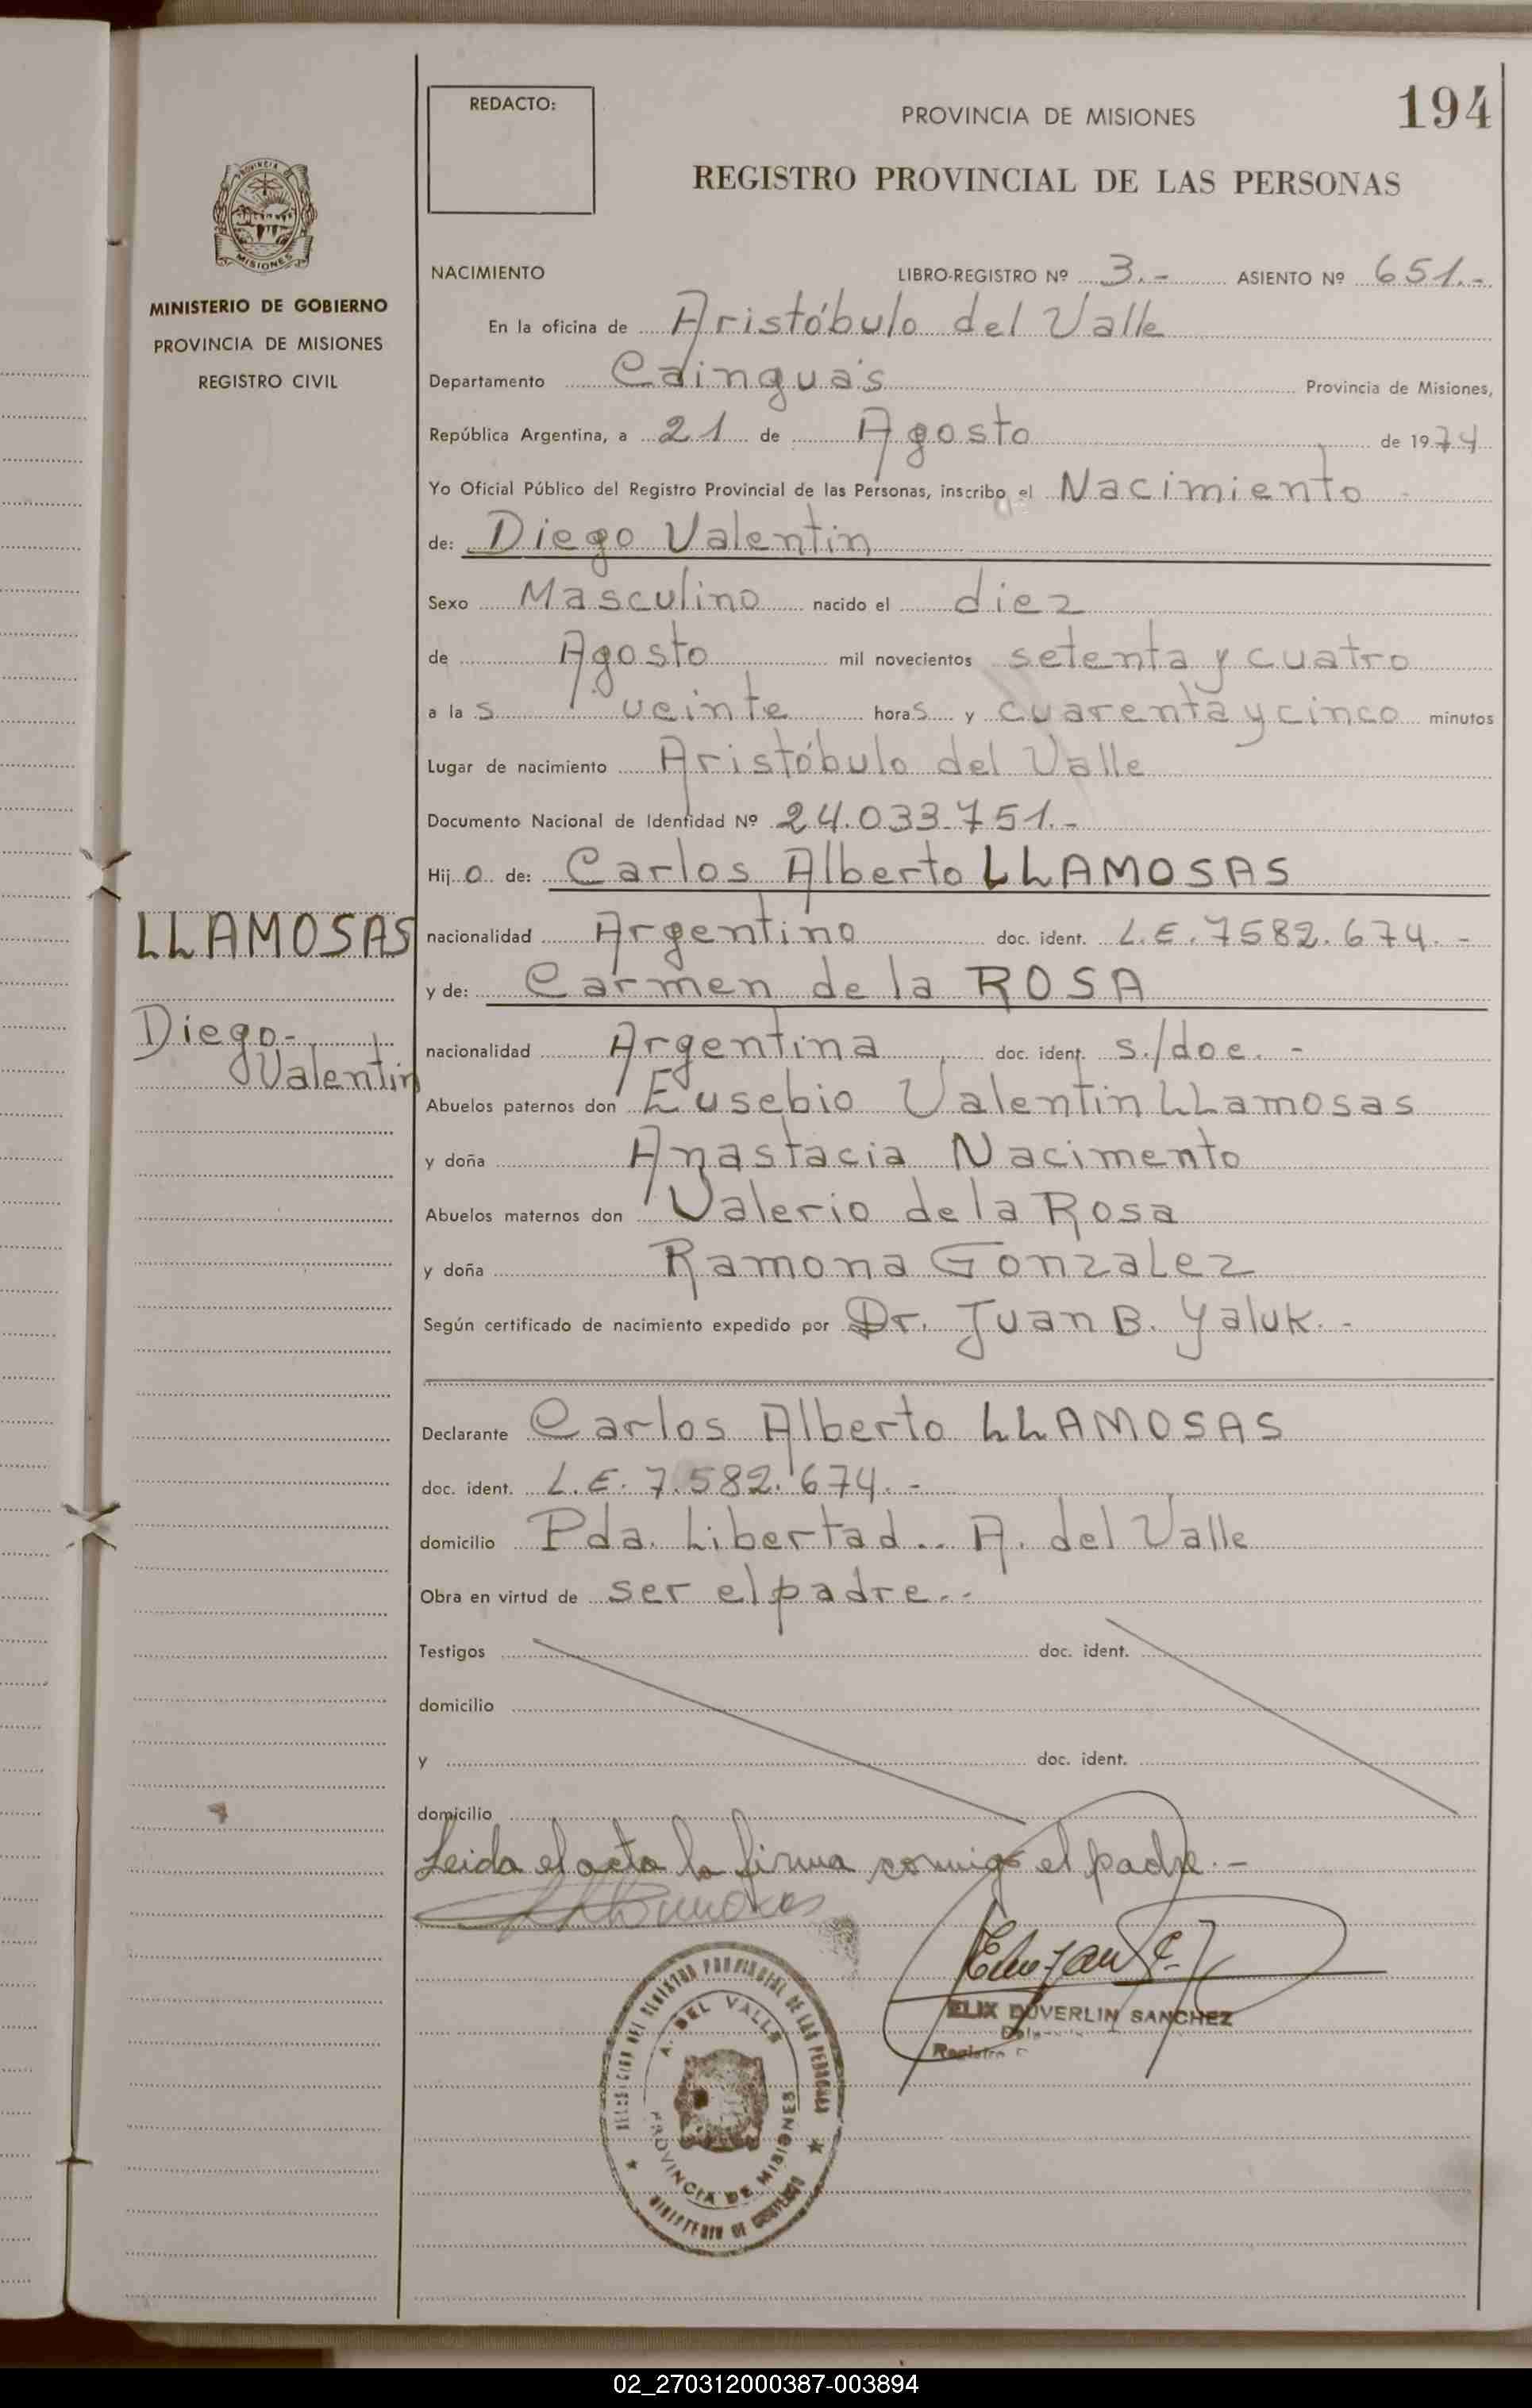 194
REDACTO:
PROVINCIA DE MISIONES
REGISTRO PROVINCIAL DE LAS PERSONAS
MISIONES
MINISTERIO DE GOBIERNO
PROVINCIA DE MISIONES
REGISTRO CIVIL
NACIMIENTO LIBRO-REGISTRO Nº 3.- ASIENTO Nº 651.-
En la oficina de Aristóbulo del Valle
Departamento Cainguás Provincia de Misiones,
República Argentina, a 21 de Agosto de 1974
Yo Oficial Público del Registro Provincial de las Personas, inscribo el Nacimiento -
de: Diego Valentin
Sexo Masculino nacido el diez
de Agosto mil novecientos setenta y cuatro
a la s veinte horas y cuarenta y cinco minutos
Lugar de nacimiento Aristóbulo del Valle
Documento Nacional de Identidad Nº 24.033.751.-
Hij o de: Carlos Alberto LLAMOSAS
nacionalidad Argentino doc. ident. L.E. 7582.674.-
y de: Carmen de la ROSA
nacionalidad Argentina doc. ident. s./doc. -
Abuelos paternos don Eusebio Valentin LLamosas
y doña Anastacia Nacimento
Abuelos maternos don Valerio de la Rosa
y doña Ramona Gonzalez
Según certificado de nacimiento expedido por Dr. Juan B. Yaluk. -
LLAMOSAS
Diego-
Valentin
Declarante Carlos Alberto LLAMOSAS
doc. ident. L.E. 7.582.674. -
domicilio Pda. Libertad.. A. del Valle
Obra en virtud de ser el padre.-
Testigos doc. ident.
domicilio
y doc. ident.
domicilio
Leida el acta la firma conmigo el padre.-
ELIX DUVERLIN SANCHEZ
Registro
DEL REGISTRO PROVINCIAL DE LAS PERSONAS
A. DEL VALLE
PROVINCIA DE MISIONES
MINISTERIO DE GOBIERNO
02_270312000387-003894